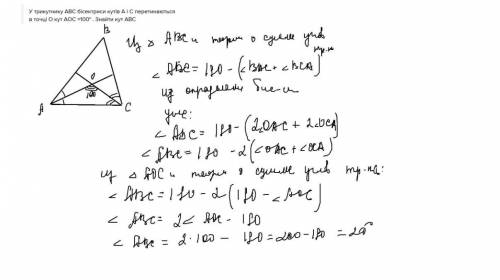 У трикутнику ABC бісектриси кутів А і С перетинаються
в точці О кут АОС =100° . Знайти кут АВС
B
O
100
A
C
Из △ ABC и теорем о сумме углов
тр-ка
∠ ABC = 180 - (∠BAC + ∠BCA)
из определения бис-сы
угле:
∠ ABC = 180 - (2∠OAC + 2∠OCA)
∠ ABC = 180 - 2(∠OAC + ∠OCA)
из △ AOC и теорем о сумме углов тр-ка:
∠ ABC = 180 - 2(180 - ∠AOC)
∠ ABC = 2∠ AOC - 180
∠ ABC = 2·100 - 180 = 200 - 180 = 20°